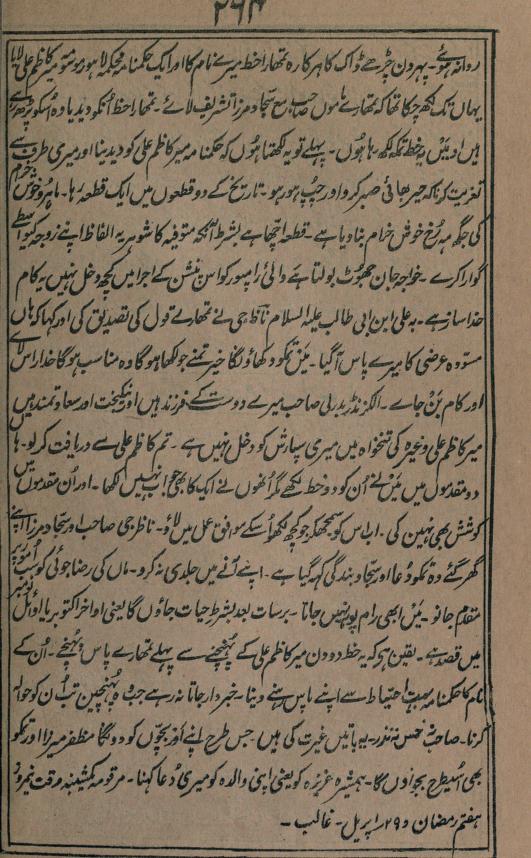 ۲۶۴
روانہ ہوئے۔ پہر دن چڑھے ڈاک کا ہرکارہ تمھارا خط میرے نام کا اور ایک حکمنامہ محکمہ لاہور موسومہ میر کاظم علی لایا
یہاں تک لکھ چکا تھا کہ تمھارے ماموں صاحب مع سجاد مرزا تشریف لائے۔ تمھارا خط اُنکو دیدیا وہ اُسکو پڑھ رہے
ہیں اور میں یہ خط تمکو لکھ رہا ہوں۔ پہلے تو یہ لکھتا ہوں کہ حکمنامہ میر کاظم علی کو دیدینا اور میری طرف سے
تعزیت کرنا کہ بھائی صبر کرو اور چپ ہو رہو۔ تاریخ کے دو قطعوں میں ایک قطعہ رہا۔ ماہرو خوش خرام
کی جگہ مہ رُخ خوش خرام بنا دیا ہے۔ قطعہ اچھا ہے بشرط آنکہ متوفیہ کا شوہر یہ الفاظ اپنے زوجہ کیواسطے
گوارا کرے۔ خواجہ جان جھوٹ بولتا ہے والئ رامپور کو اس پنشن کے اجرا میں کچھ دخل نہیں یہ کام
خدا ساز ہے۔ بہ علی ابن ابی طالب علیہ السلام ناظر جی نے تمھارے قول کی تصدیق کی اور کہا کہ ہاں
مسودہ عرضی کا میرے پاس آگیا۔ میں تمکو دکھاؤں گا خیر تمنے جو لکھا ہوگا وہ مناسب ہوگا خدا راس لائے
اور کام بن جاے۔ الکزنڈر ہدرلی صاحب میرے دوست کے فرزند ہیں اور نیکبخت اور سعادتمند ہیں
میر کاظم علی وغیرہ کی تنخواہ میں میری سپارش کو دخل نہیں ہے۔ تم کاظم علی سے دریافت کر لو۔ ہاں
دو مقدموں میں میں نے اُن کو دو خط لکھے مگر اُنھوں نے ایک کا بھی جواب نہیں لکھا۔ اور اُن مقدموں میں
کوشش بھی نہین کی۔ اب اس کو سمجھکر جو کچھ لکھو اُسکے موافق عمل میں لاؤں۔ ناظر جی صاحب اور سجاد مرزا اپنے
گھر گئے وہ تمکو دُعا اور سجاد بندگی کہہ گیا ہے۔ اپنے آنے میں جلدی نہ کرو۔ ماں کی رضا جوئی کو سب امور پر
مقدم جانو۔ میں ابھی رام پور نہیں جاتا۔ برسات بعد بشرط حیات جاؤں گا یعنی اواخر اکتوبر یا اوائل نومبر
میں قصد ہے۔ یقین ہے کہ یہ خط دو دن میر کاظم علی کے پہنچنے سے پہلے تمھارے پاس پہنچے۔ اُن کے
نام کا حکمنامہ بہت احتیاط سے اپنے پاس رہنے دینا۔ خبردار جاتا نہ رہے جب وہ پہنچین تب اُن کو حوالہ
کرنا۔ صاحب نہ تذر۔ یہ باتیں غیرت کی ہیں جس طرح اپنے اور بچوں کو دونگا مظفر میرزا اور تمکو
بھی اُسیطرح بھجوادوں گا۔ ہمشیرہ عزیزہ کو یعنی اپنی والدہ کو میری دُعا کہنا۔ مرقومہ یکشنبہ وقت نیمروز
ہفتم رمضان و ۲۹ اپریل۔ غالب۔